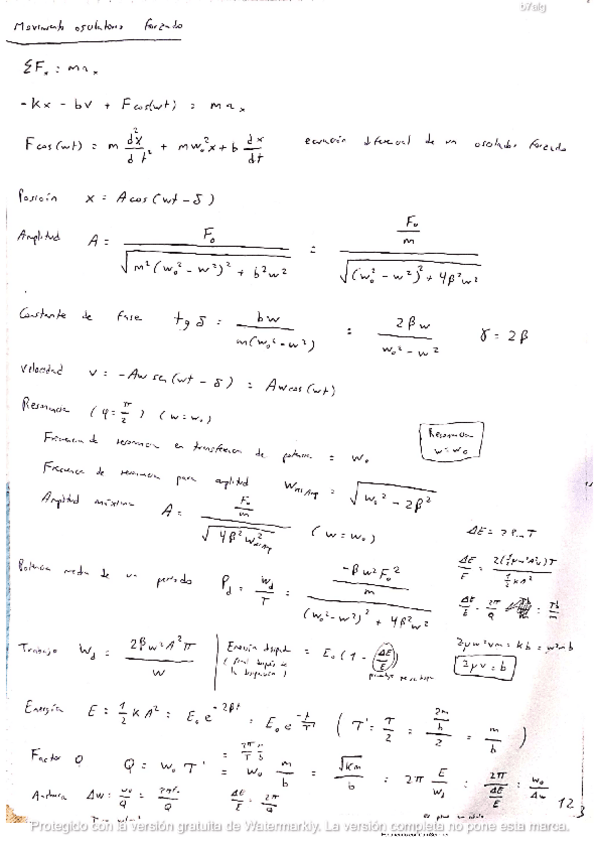 b7elg
Movimiento oscilatorio forzado
ΣFₓ = maₓ
-kx - bv + Fcos(wt) = maₓ
Fcos(wt) = m d²x/dt² + mw₀²x + b dx/dt    ecuación diferencial de un oscilador forzado
Posición x = A cos(wt - δ)
Amplitud A = F₀ / √(m²(w₀² - w²)² + b²w²) = (F₀/m) / √((w₀² - w²)² + 4β²w²)
Constante de fase tg δ = bw / m(w₀² - w²) = 2βw / (w₀² - w²)    γ = 2β
Velocidad v = -Aw sen(wt - δ) = Aw cos(wt)
Resonancia (φ = π/2) (w = w₀)
Frecuencia de resonancia en transferencia de potencia = w₀
Resonancia w = w₀
Frecuencia de resonancia para amplitud = √(w₀² - 2β²)
Amplitud máxima A = (F₀/m) / √(4β²w²) (w = w₀)
ΔE = 2PₘT
Potencia media de un periodo P_d = w_d/T = (-βw²F₀²/m) / ((w₀² - w²)² + 4β²w²)
Trabajo W_d = 2βw²A²π / w
= E₀(1 - ΔE/E)
2μv = b
Energía E = 1/2 kA² = E₀e^(-2βt) = E₀e^(-t/T') (T' = T/2 = (2m/b)/2 = m/b)
Factor Q Q = w₀T' = w₀ m/b = √(km)/b = 2π E/W_d = 2π/(ΔE/E) = w₀/Δw
Anchura Δw = w₀/Q    ΔE/E = 2π/Q
12
Protegido con la versión gratuita de Watermarkly. La versión completa no pone esta marca.